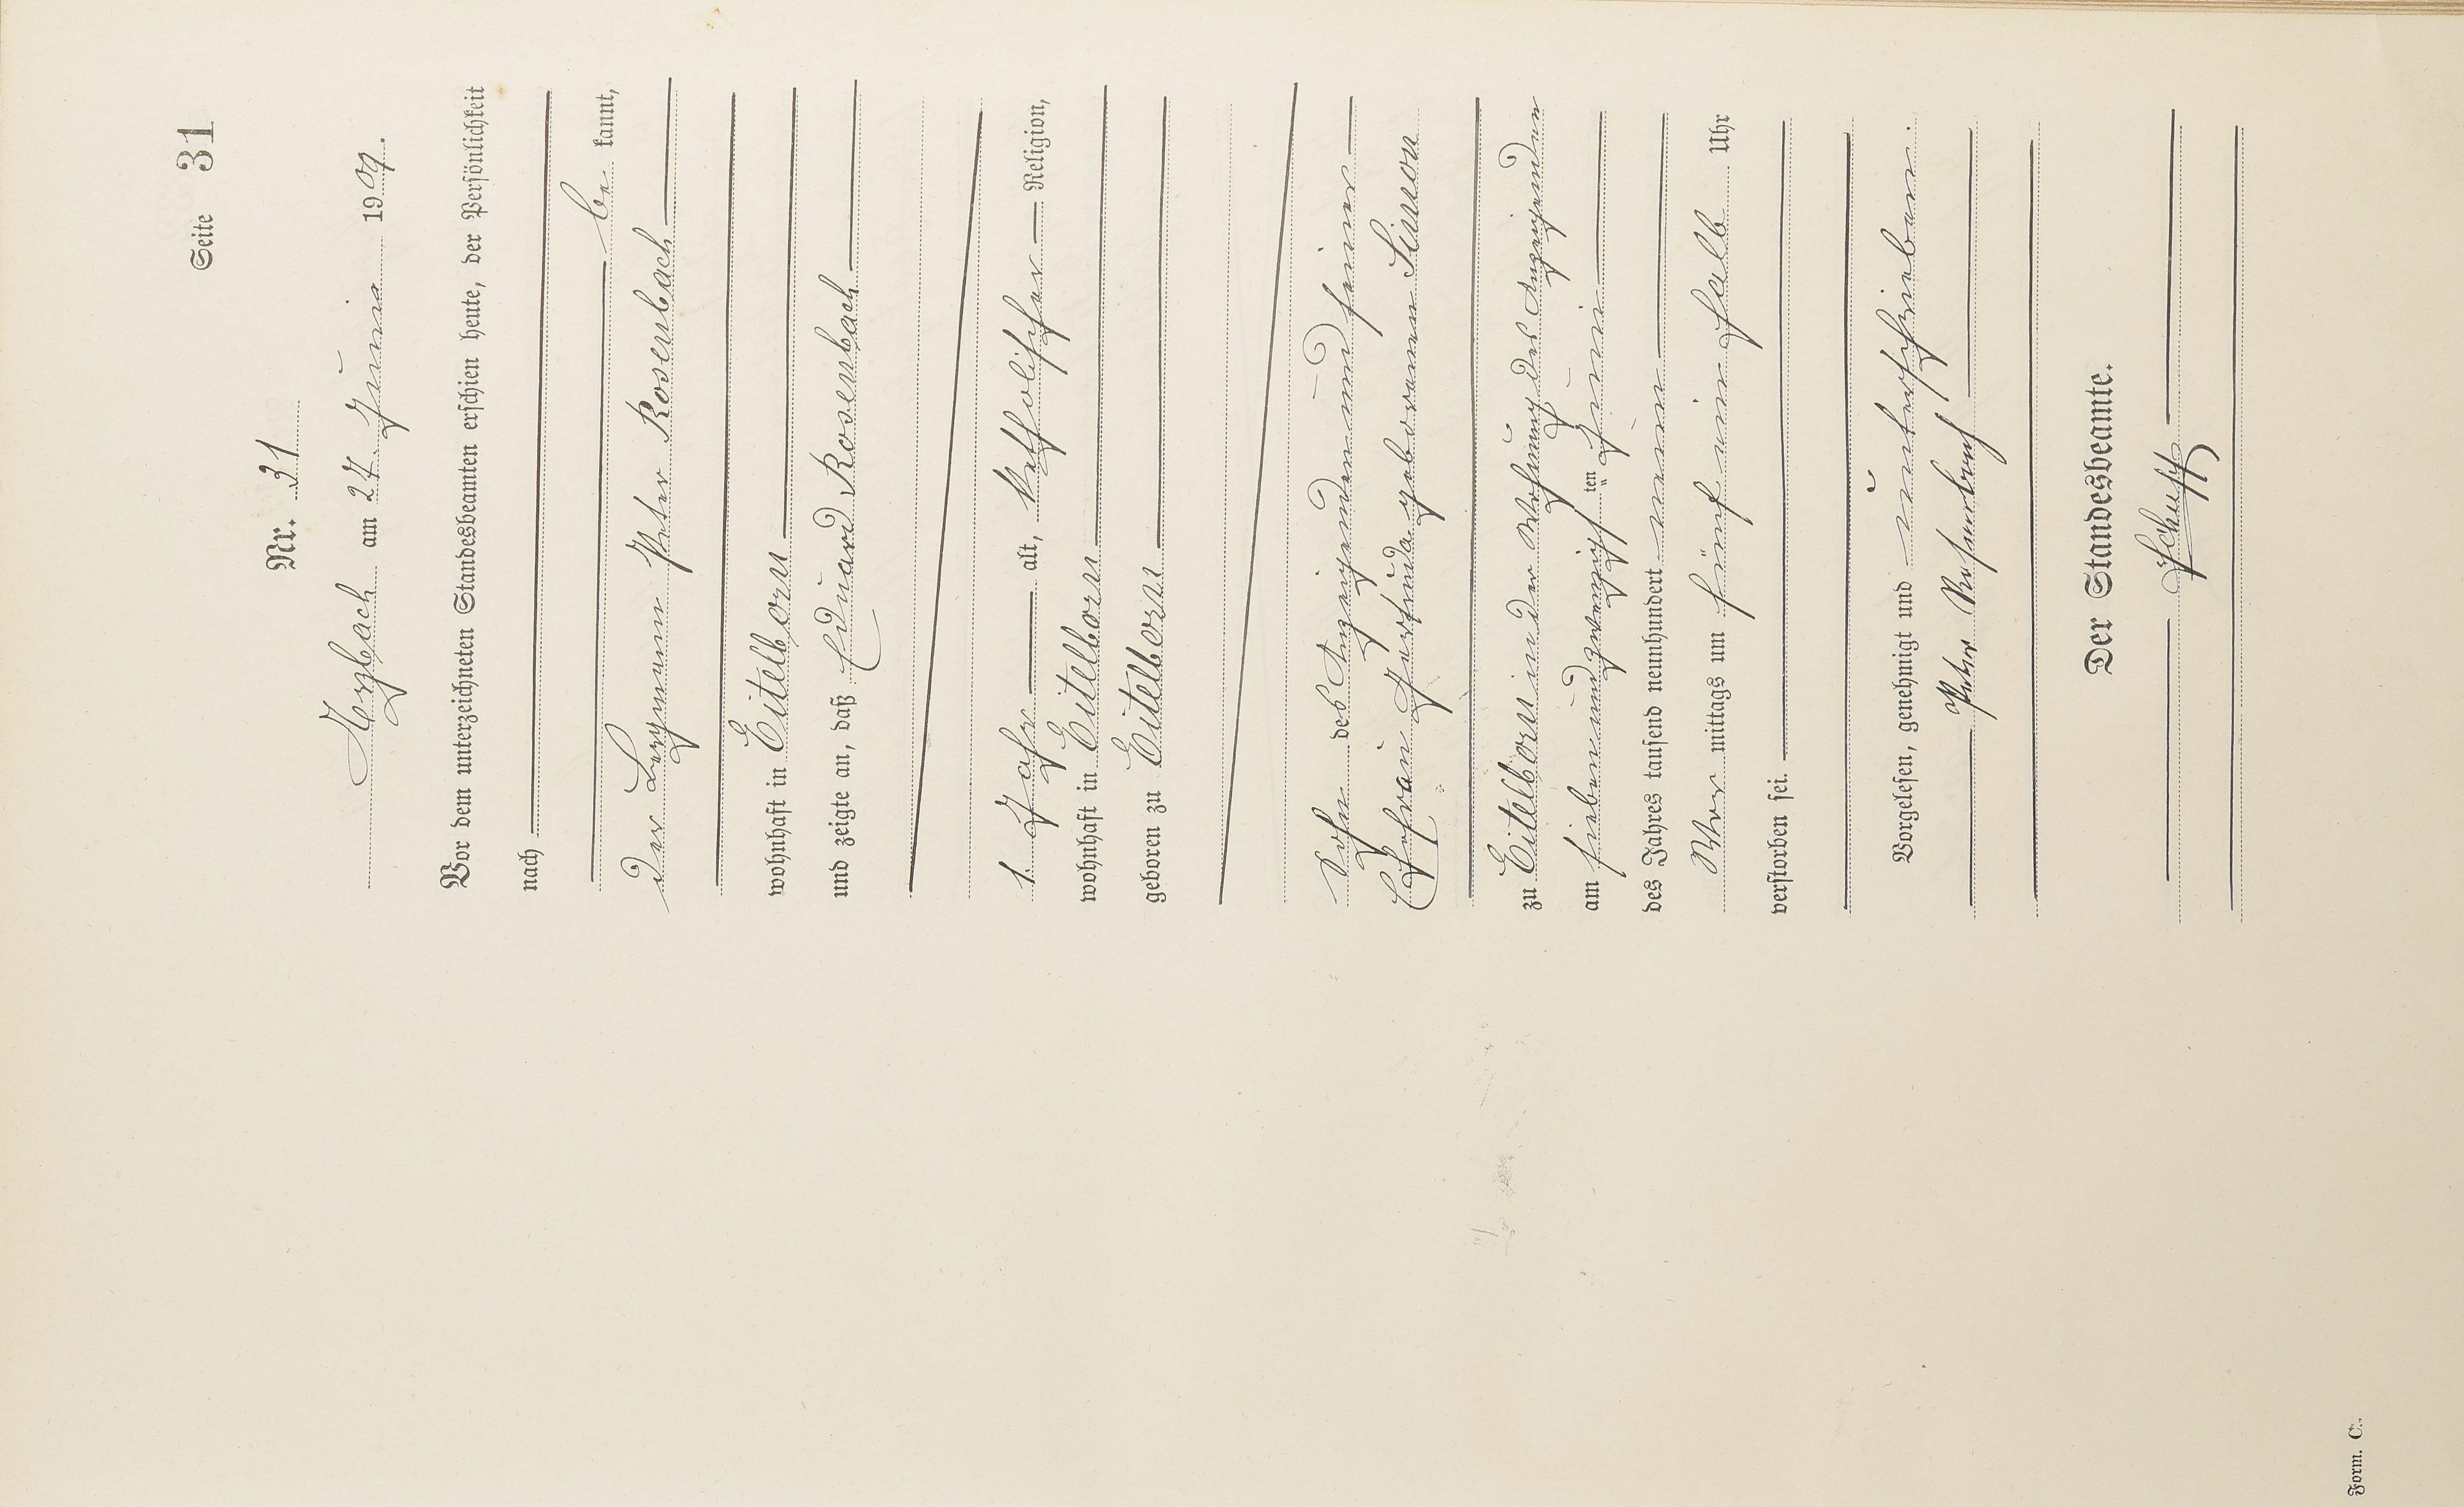 Seite 31
Nr. 31
Arzbach am 27. Juni 1909.
Vor dem unterzeichneten Standesbeamten erschien heute, der Persönlichkeit
nach
be kannt,
der Bergmann Peter Rosenbach
wohnhaft in Eitelborn
und zeigte an, daß Eduard Rosenbach
1. Jahr alt, katholischer Religion,
wohnhaft in Eitelborn
geboren zu Eitelborn
Sohn des Anzeigenden und seiner
Ehefrau geborenen Simon
zu Eitelborn in der Wohnung des Anzeigenden
am siebenundzwanzigsten ten Juni
des Jahres tausend neunhundert neun
Vor mittags um fünf ein halb Uhr
verstorben sei.
Vorgelesen, genehmigt und unterschrieben.
Peter Rosenbach
Der Standesbeamte.
Form. C.